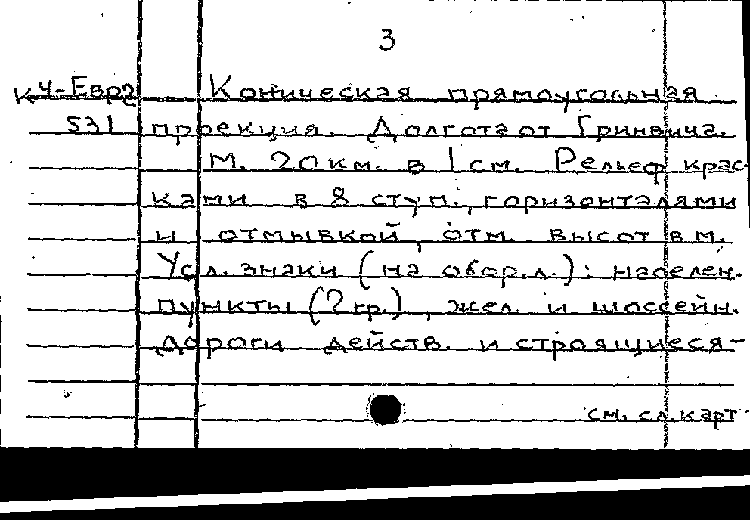 3
К4-Евр2 Коническая прямоугольная
531 проекция. Долгота от Гринвича.
М. 20км. в 1см. Рельеф крас-
ками в 8 ступ., горизонталями
и отмывкой, отм. высот в м.
Усл. знаки (на обор.л.): населен.
пункты (7 гр.), жел. и шоссейн.
дороги действ. и строящиеся-
см. сл. карт